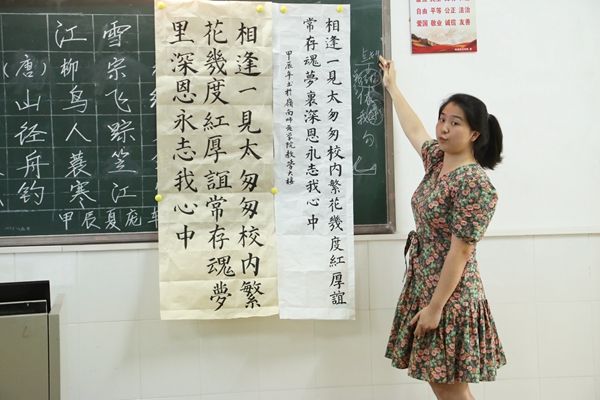 江雪
(唐)柳宗
山鸟飞
径人踪
舟蓑笠
钓寒江
甲辰夏庞
相逢一見太匆匆校內繁
花幾度紅厚誼常存魂夢
里深恩永志我心中
相逢一見太匆匆校內繁花幾度紅厚誼
常存魂夢裏深恩永志我心中
甲辰年书於嶺南师范学院教学大楼
自由 平等 公正 法治
爱国 敬业 诚信 友善